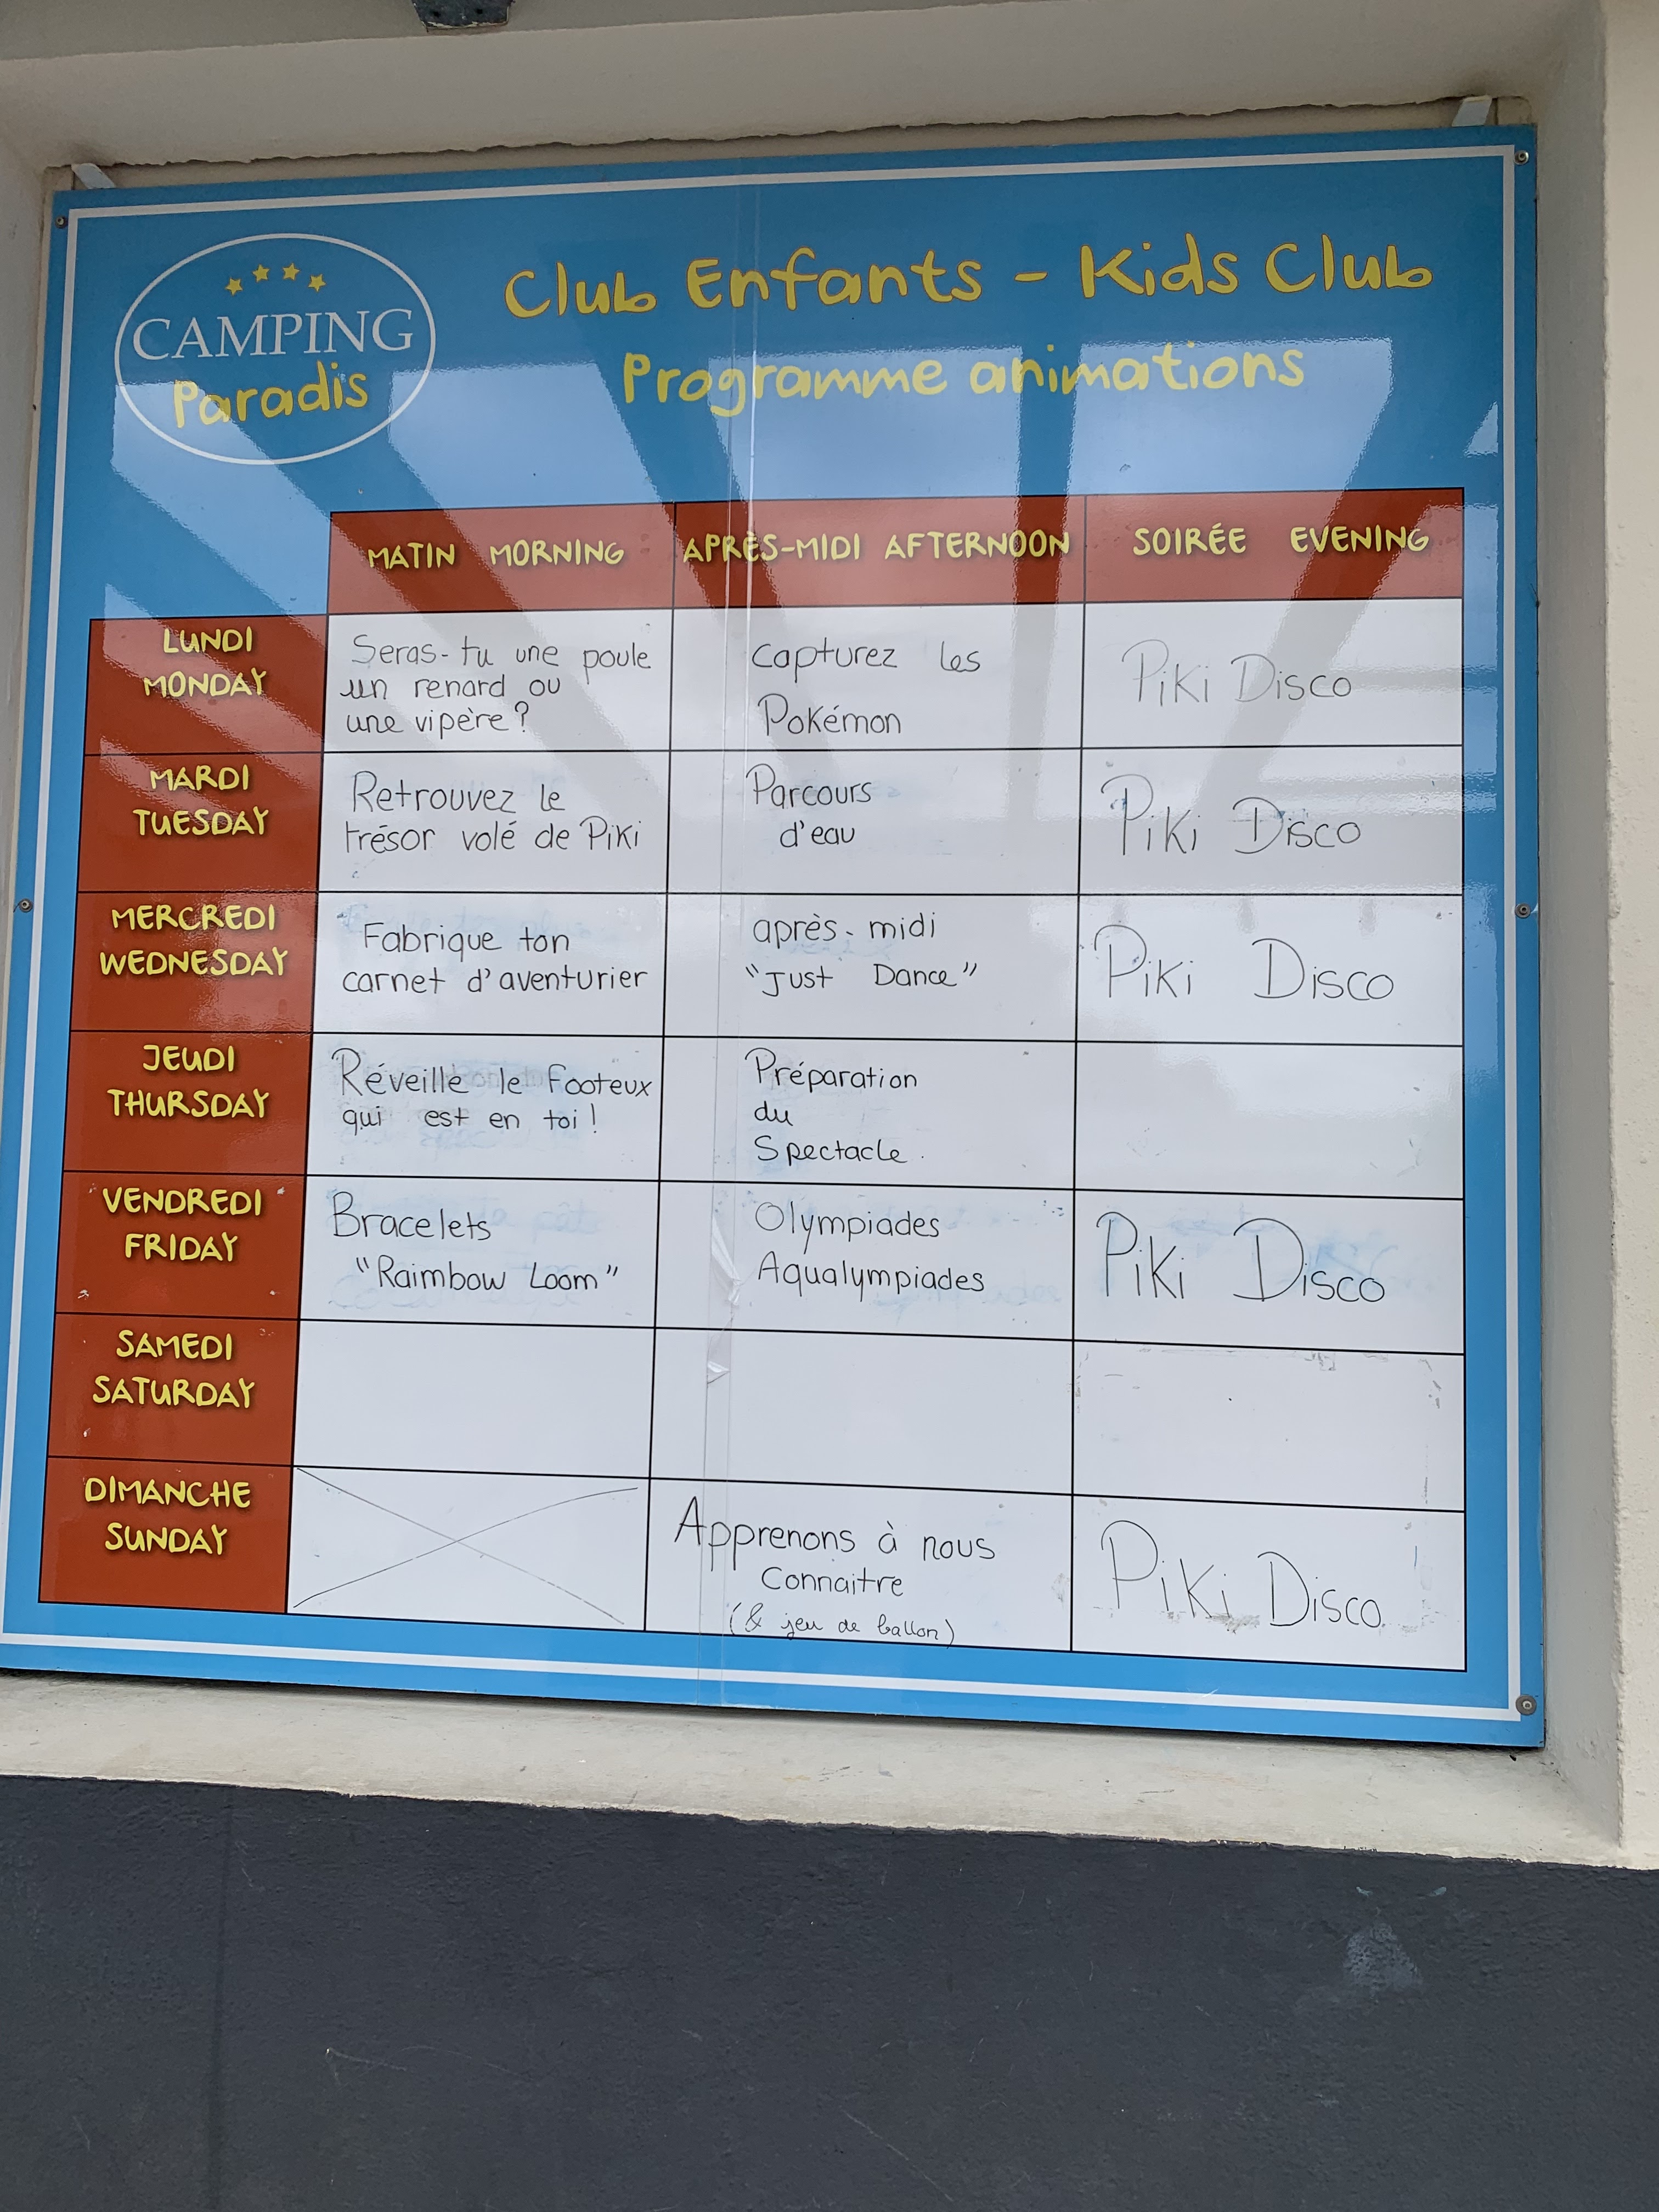 CAMPING
Paradis
Club Enfants - Kids Club
Programme animations
MATIN MORNING
APRÈS-MIDI AFTERNOON
SOIRÉE EVENING
LUNDI
MONDAY
Seras-tu une poule
un renard ou
une vipère ?
capturez les
Pokémon
Piki Disco
MARDI
TUESDAY
Retrouvez le
trésor volé de Piki
Parcours
d'eau
Piki Disco
MERCREDI
WEDNESDAY
Fabrique ton
carnet d'aventurier
après-midi
"Just Dance"
Piki Disco
JEUDI
THURSDAY
Réveille le Footeux
qui est en toi !
Préparation
du
Spectacle.
VENDREDI
FRIDAY
Bracelets
"Raimbow Loom"
Olympiades
Aqualympiades
Piki Disco
SAMEDI
SATURDAY
DIMANCHE
SUNDAY
Apprenons à nous
Connaitre
(& jeu de ballon)
Piki Disco